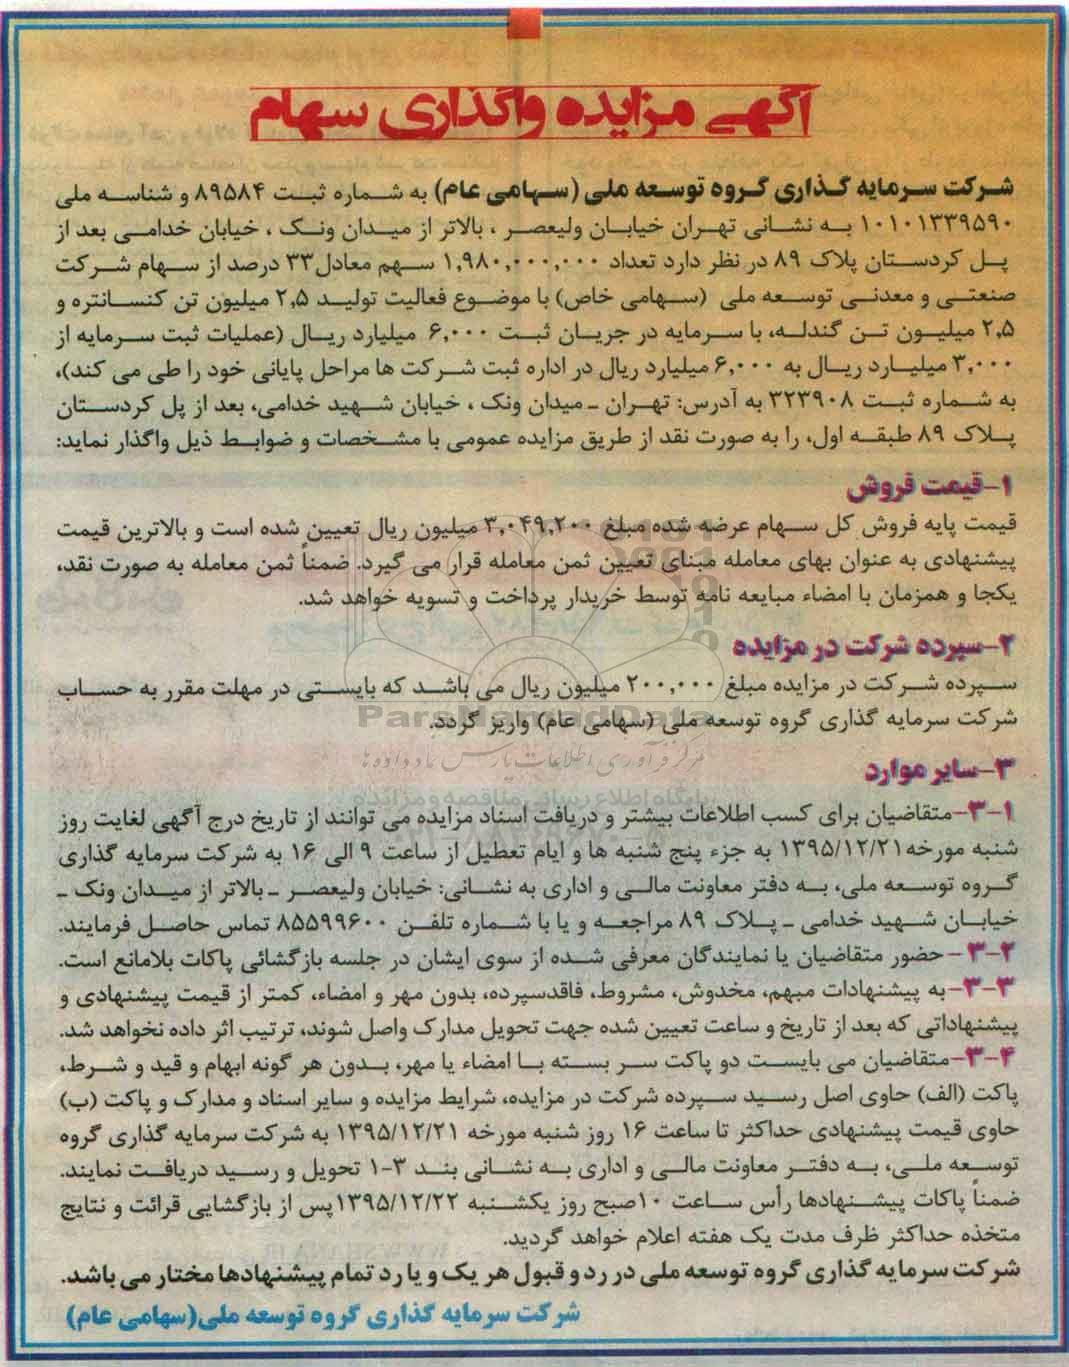 آگهی مزایده واگذاری سهام
شرکت سرمایه گذاری گروه توسعه ملی (سهامی عام) به شماره ثبت ۸۹۵۸۴ و شناسه ملی
۱۰۱۰۱۳۳۹۵۹۰ به نشانی تهران خیابان ولیعصر ، بالاتر از میدان ونک ، خیابان خدامی بعد از
پل کردستان پلاک ۸۹ در نظر دارد تعداد ۱,۹۸۰,۰۰۰,۰۰۰ سهم معادل ۳۳ درصد از سهام شرکت
صنعتی و معدنی توسعه ملی (سهامی خاص) با موضوع فعالیت تولید ۲,۵ میلیون تن کنسانتره و
۲,۵ میلیون تن گندله، با سرمایه در جریان ثبت ۶,۰۰۰ میلیارد ریال (عملیات ثبت سرمایه از
۳,۰۰۰ میلیارد ریال به ۶,۰۰۰ میلیارد ریال در اداره ثبت شرکت ها مراحل پایانی خود را طی می کند)،
به شماره ثبت ۳۲۳۹۰۸ به آدرس: تهران - میدان ونک ، خیابان شهید خدامی، بعد از پل کردستان
پلاک ۸۹ طبقه اول، را به صورت نقد از طریق مزایده عمومی با مشخصات و ضوابط ذیل واگذار نماید:
۱-قیمت فروش
قیمت پایه فروش کل سهام عرضه شده مبلغ ۳,۰۴۹,۲۰۰ میلیون ریال تعیین شده است و بالاترین قیمت
پیشنهادی به عنوان بهای معامله مبنای تعیین ثمن معامله قرار می گیرد. ضمناً ثمن معامله به صورت نقد،
یکجا و همزمان با امضاء مبایعه نامه توسط خریدار پرداخت و تسویه خواهد شد.
۲-سپرده شرکت در مزایده
سپرده شرکت در مزایده مبلغ ۲۰۰,۰۰۰ میلیون ریال می باشد که بایستی در مهلت مقرر به حساب
شرکت سرمایه گذاری گروه توسعه ملی (سهامی عام) واریز گردد.
ParsNamadData
مرکز فرآوری اطلاعات پارس نماد داده ها
۳-سایر موارد
۳-۱-متقاضیان برای کسب اطلاعات بیشتر و دریافت اسناد مزایده می توانند از تاریخ درج آگهی لغایت روز
شنبه مورخه ۱۳۹۵/۱۲/۲۱ به جزء پنج شنبه ها و ایام تعطیل از ساعت ۹ الی ۱۶ به شرکت سرمایه گذاری
گروه توسعه ملی، به دفتر معاونت مالی و اداری به نشانی: خیابان ولیعصر - بالاتر از میدان ونک -
خیابان شهید خدامی - پلاک ۸۹ مراجعه و یا با شماره تلفن ۸۵۵۹۹۶۰۰ تماس حاصل فرمایند.
۳-۲- حضور متقاضیان یا نمایندگان معرفی شده از سوی ایشان در جلسه بازگشائی پاکات بلامانع است.
۳-۳-به پیشنهادات مبهم، مخدوش، مشروط، فاقدسپرده، بدون مهر و امضاء، کمتر از قیمت پیشنهادی و
پیشنهاداتی که بعد از تاریخ و ساعت تعیین شده جهت تحویل مدارک واصل شوند، ترتیب اثر داده نخواهد شد.
۳-۴-متقاضیان می بایست دو پاکت سر بسته با امضاء یا مهر، بدون هر گونه ابهام و قید و شرط،
پاکت (الف) حاوی اصل رسید سپرده شرکت در مزایده، شرایط مزایده و سایر اسناد و مدارک و پاکت (ب)
حاوی قیمت پیشنهادی حداکثر تا ساعت ۱۶ روز شنبه مورخه ۱۳۹۵/۱۲/۲۱ به شرکت سرمایه گذاری گروه
توسعه ملی، به دفتر معاونت مالی و اداری به نشانی بند ۳-۱ تحویل و رسید دریافت نمایند.
ضمناً پاکات پیشنهادها رأس ساعت ۱۰صبح روز یکشنبه ۱۳۹۵/۱۲/۲۲ پس از بازگشایی قرائت و نتایج
متخذه حداکثر ظرف مدت یک هفته اعلام خواهد گردید.
شرکت سرمایه گذاری گروه توسعه ملی در رد و قبول هر یک و یا رد تمام پیشنهادها مختار می باشد.
شرکت سرمایه گذاری گروه توسعه ملی(سهامی عام)